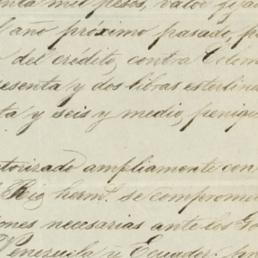 enta mil pesos, valor fijad
l año próximo pasado, p
o del crédito, contra Colom
esenta y dos libras esterlina
ta y seis y medio, peniqu
torizado ampliamente con
Rig herm.s se comprome
iones necesarias ante los Go
Venezuela y Ecuador